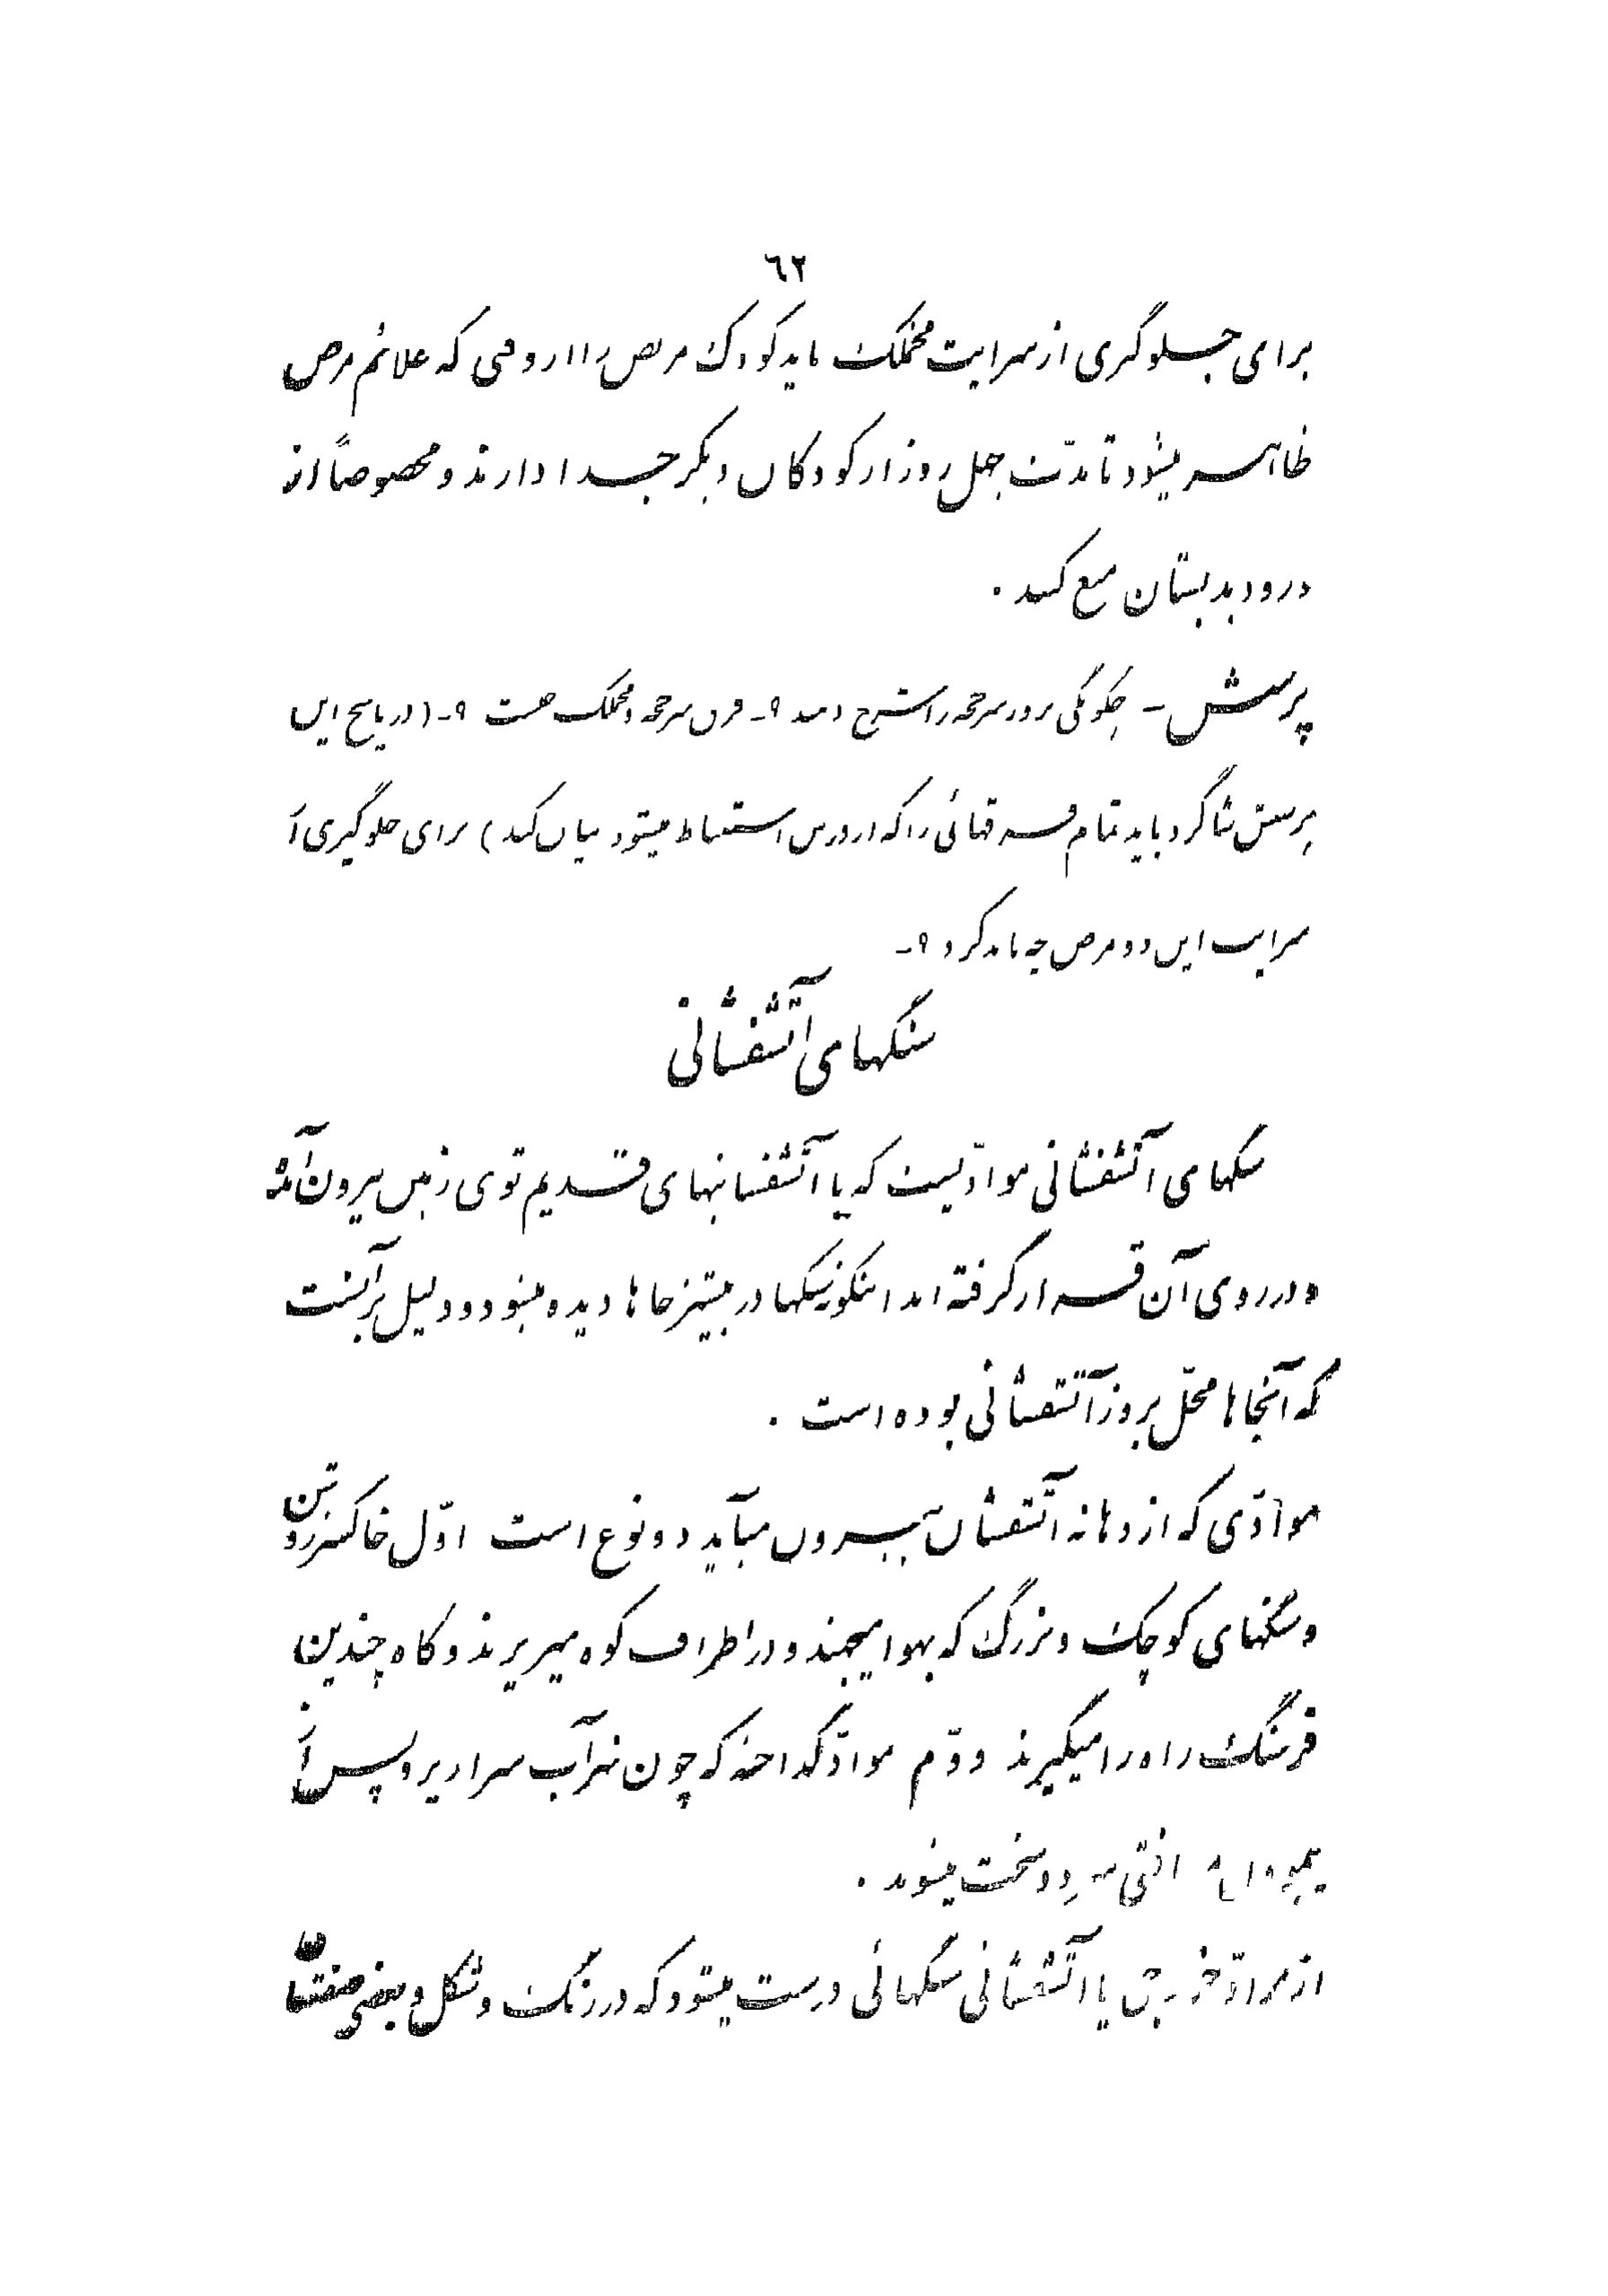 ٦٢
برای جلوگری از سرایت مخملک باید کودک مریض را از روزی که علائم مرض
ظاهر میشود تا مدّت چهل روز از کودکان دیگر جدا دارند و مخصوصاً از
درود بدبستان منع کنند .
پرسش - چگونگی بروز سرخجه را شرح دهید ؟- فرق سرخجه و مخملک چیست ؟- (در پاسخ این
پرسش شاگرد باید تمام فرقهائی را که از درس استنباط میشود بیان کند) برای جلوگیری از
سرایت این دو مرض چه باید کرد ؟-
سنگهای آتشفشانی
سنگهای آتشفشانی موادّیست که با آتشفشانهای قدیم توی زمین بیرون آمده
و در روی آن قرار گرفته اند اینگونه سنگها در بیشتر جاها دیده میشود و دلیل بر آنست
که آنجاها محلّ بروز آتشفشانی بوده است .
موادّی که از دهانه آتشفشان بیرون میآید دو نوع است اوّل خاکستر و شن
و سنگهای کوچک و بزرگ که بهوا میجهند و در اطراف کوه میریزند و گاه چندین
فرسنگ راه را میگیرند دوّم موادّ گداخته که چون نهر آب سرازیر و پس از
سرد و سخت میشوند .
از موادّ خروجی یا آتشفشانی سنگهائی درست میشود که در رنگ و شکل و بعضی صفتها